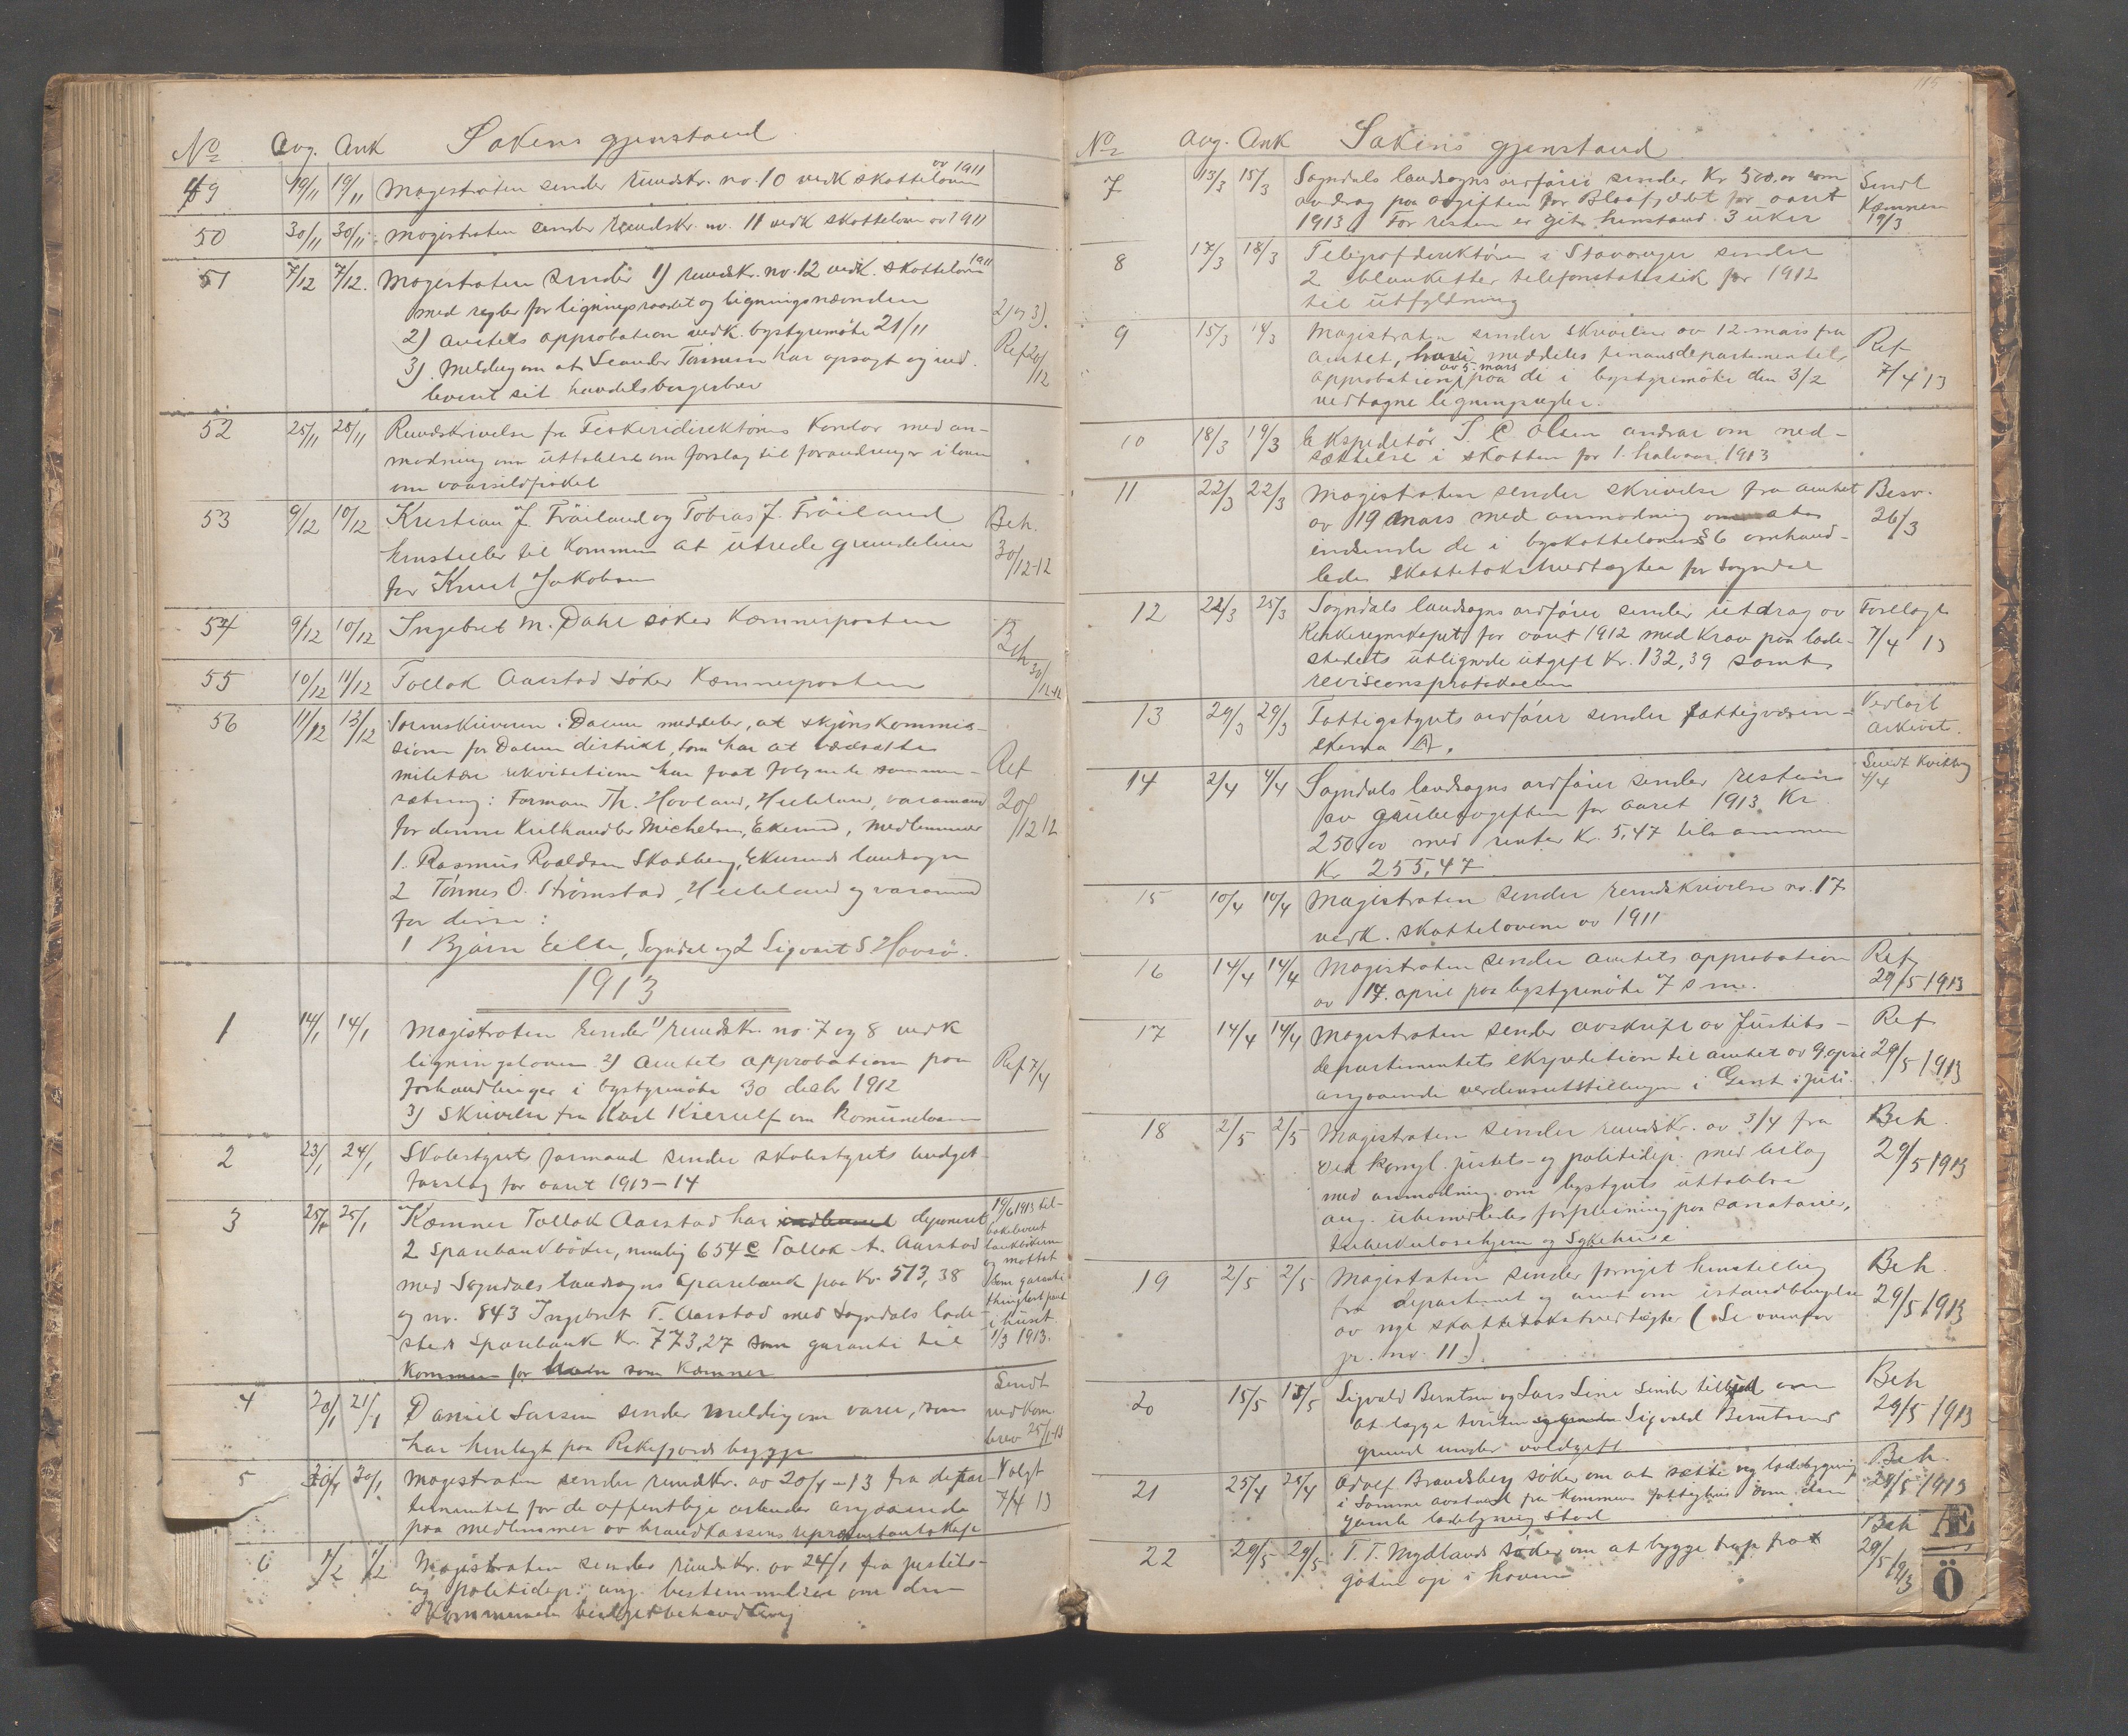 No Avg. Ank Sakens gjenstand
49 19/11 19/11 Magistraten sender rundskr. no. 10 vedk skatteloven av 1911
50 30/11 30/11 Magistraten sender rundskr. no. 11 vedk skatteloven av 1911
51 7/12 7/12. Magistraten sender 1) rundskr. no. 12 vedk. skatteloven 1911
med regler for ligningsraadet og ligningsnævnden
2) amtets approbation vedk. bystyremöte 21/11
3). Melding om at Leander Tönnesen har opsagt og ind-
leveret sit handelsborgerbrev
2) og 3).
Ref 20/12
52 25/11 28/11 Rundskrivelse fra Fiskeridirektörens Kontor med an-
modning om uttalelse om forslag til forandringer i loven
om vaarsildfisket
53 9/12 10/12 Kristian J. Fröiland og Tobias J. Fröiland
henstiller til Kommunen at utrede grundleien
for Knut Jakobsen
Beh.
30/12-12
54 9/12 10/12 Ingebret M. Dahl söker Kæmnerposten
Beh
55 10/12 11/12 Tollak Aarstad söker Kæmnerposten
30/12-12
56 11/12 13/12 Sorenskriveren i Dalene meddeler, at skjönskommis-
sionen for Dalene distrikt, som har at værdsætte
militære rekvisitioner har faat fölgende sammen-
sætning: Formann Th. Hovland, Helleland, varamand
for denne Kulhandler Michelsen, Ekersund, Medlemmer
1. Rasmus Roaldsen Skadberg, Ekersunds landsogn
2 Tönnes O. Strömstad, Helleland og varamænd
for disse:
1 Björn Eelle, Sogndal og 2 Sigvart S Hovsö.
Ref
20/12 12
1913
1 14/1 14/1 Magistraten sender 1) rundskr. no. 7 og 8 vedk
ligningsloven 2) amtets approbation paa
forhandlinger i bystyremöte 30 decbr 1912
3) Skrivelse fra Karl Kierulf om komuneloven
Ref 7/4
2 23/1 24/1 Skolestyrets formand sender skolestyrets budget-
forslag for aaret 1913-14
3 25/1 25/1 Kæmner Tollak Aarstad har indleveret deponeret
2 sparebankböker, nemlig 654 c Tollak T. Aarstad
med Sogndals landsogns Sparebank paa Kr. 513,38
og nr. 843 Ingebret T. Aarstad med Sogndals lade-
steds Sparebank Kr. 773,27 som garanti til
Kommunen for ham som kæmner
19/6 1913 til-
bakelevert
bankbökerne
og mottat
som garanti
thinglæst pant
i huset
1/3 1913.
4 20/1 21/1 Daniel Larsen sender melding om varer, som
har henlagt paa Rekefjords brygge
Sendt
ved kom
brev 25/1-13
5 30/1 30/1 Magistraten sender rundskr. av 20/1-13 fra depar-
tementet for de offentlige arbeider angaaende
paa medlemmer av brandkassens representantskap
Valgt
7/4 13
6 1/2 1/2 Magistraten sender rundskr. av 24/1 fra justits-
og politidep. ang. bestemmelser om den
kommunale budgetbehandling
115
No Avg. Ank Sakens gjenstand
7 13/3 15/3 Sogndals landsogns ordförer sender Kr 500.00 som
avdrag paa avgiften for Blaafjeldet for aaret
1913. For resten er git henstand 3 uker
Sendt
Kæmneren
19/3
8 17/3 18/3 Telegrafdirektören i Stavanger sender
2 blanketter telefonstatistik for 1912
til utfyldning
9 15/3 14/3 Magistraten sender skrivelse av 12. mars fra
amtet, hvori meddeles finansdepartementets
approbation av 5. mars paa de i bystyremöte den 3/2
vedtagne ligningsregler.
Ref
7/4 13
10 18/3 19/3 Ekspeditör T. C. Olsen andrar om ned-
sættelse i skatten for 1. halvaar 1913
11 22/3 22/3 Magistraten sender skrivelse fra amtet
av 19 mars med anmodning om at
indsende de i byskattelovens § 6 omhand-
lede Skattetakstvedtægter for Sogndal
Besv.
26/3
12 22/3 25/3 Sogndals landsogns ordförer sender utdrag av
Kirkeregnskapet for aaret 1912 med Krav paa lade-
stedets utlignede utgift Kr. 132,39 samt
revisionsprotokollen
Forelagt
7/4 13
13 29/3 29/3 Fattigstyrets ordförer sender fattigvæsen-
skema A.
Vedlagt
arkivet.
14 2/4 4/4 Sogndals landsogns ordförer sender resten
av grubeavgiften for aaret 1913 Kr
250,00 med renter Kr. 5,47 tilsammen
Kr 255,47
Sendt Kvittng
4/4
15 10/4 10/4 Magistraten sender rundskrivelse no. 17
vedk. skattelovene av 1911
16 14/4 14/4 Magistraten sender amtets approbation
av 14. april paa bystyremöte 7 s m.
Ref
29/5 1913
17 14/4 14/4 Magistraten sender avskrift av Justits-
departementets ekspedition til amtet av 9. april
angaaende verdensutstillingen i Gent i juli.
Ref
29/5 1913
18 2/5 2/5 Magistraten sender rundskr. av 3/4 fra
det kongl. justits- og politidep. med bilag
med anmodning om bystyrets uttalelse
ang. ubemidledes forpleining paa sanatorier,
tuberkulosehjem og Sykehuse
Beh.
29/5 1913
19 2/5 2/5 Magistraten sender fornyet henstilling
fra departement og amt om istandbringelse
av nye skattetakstvedtægter (Se ovenfor
jr. nr. 11).
Beh.
29/5 1913
20 15/5 15/5 Sigvald Berntsen og Lars Sine sender tilbud om
at lægge tvisten Sigvald Berntsens
grund under voldgift
Beh
29/5 1913
21 25/4 25/4 Adolf Brandsberg söker om at sætte ny ladebygning
i samme avstand fra Kommunens fattighus som den
gamle ladebygning stod
Beh.
29/5 1913
22 29/5 29/5 T. T. Mydland söker om at bygge trap fra
gaten op i haven
Beh
29/5 1913
Æ
Ö